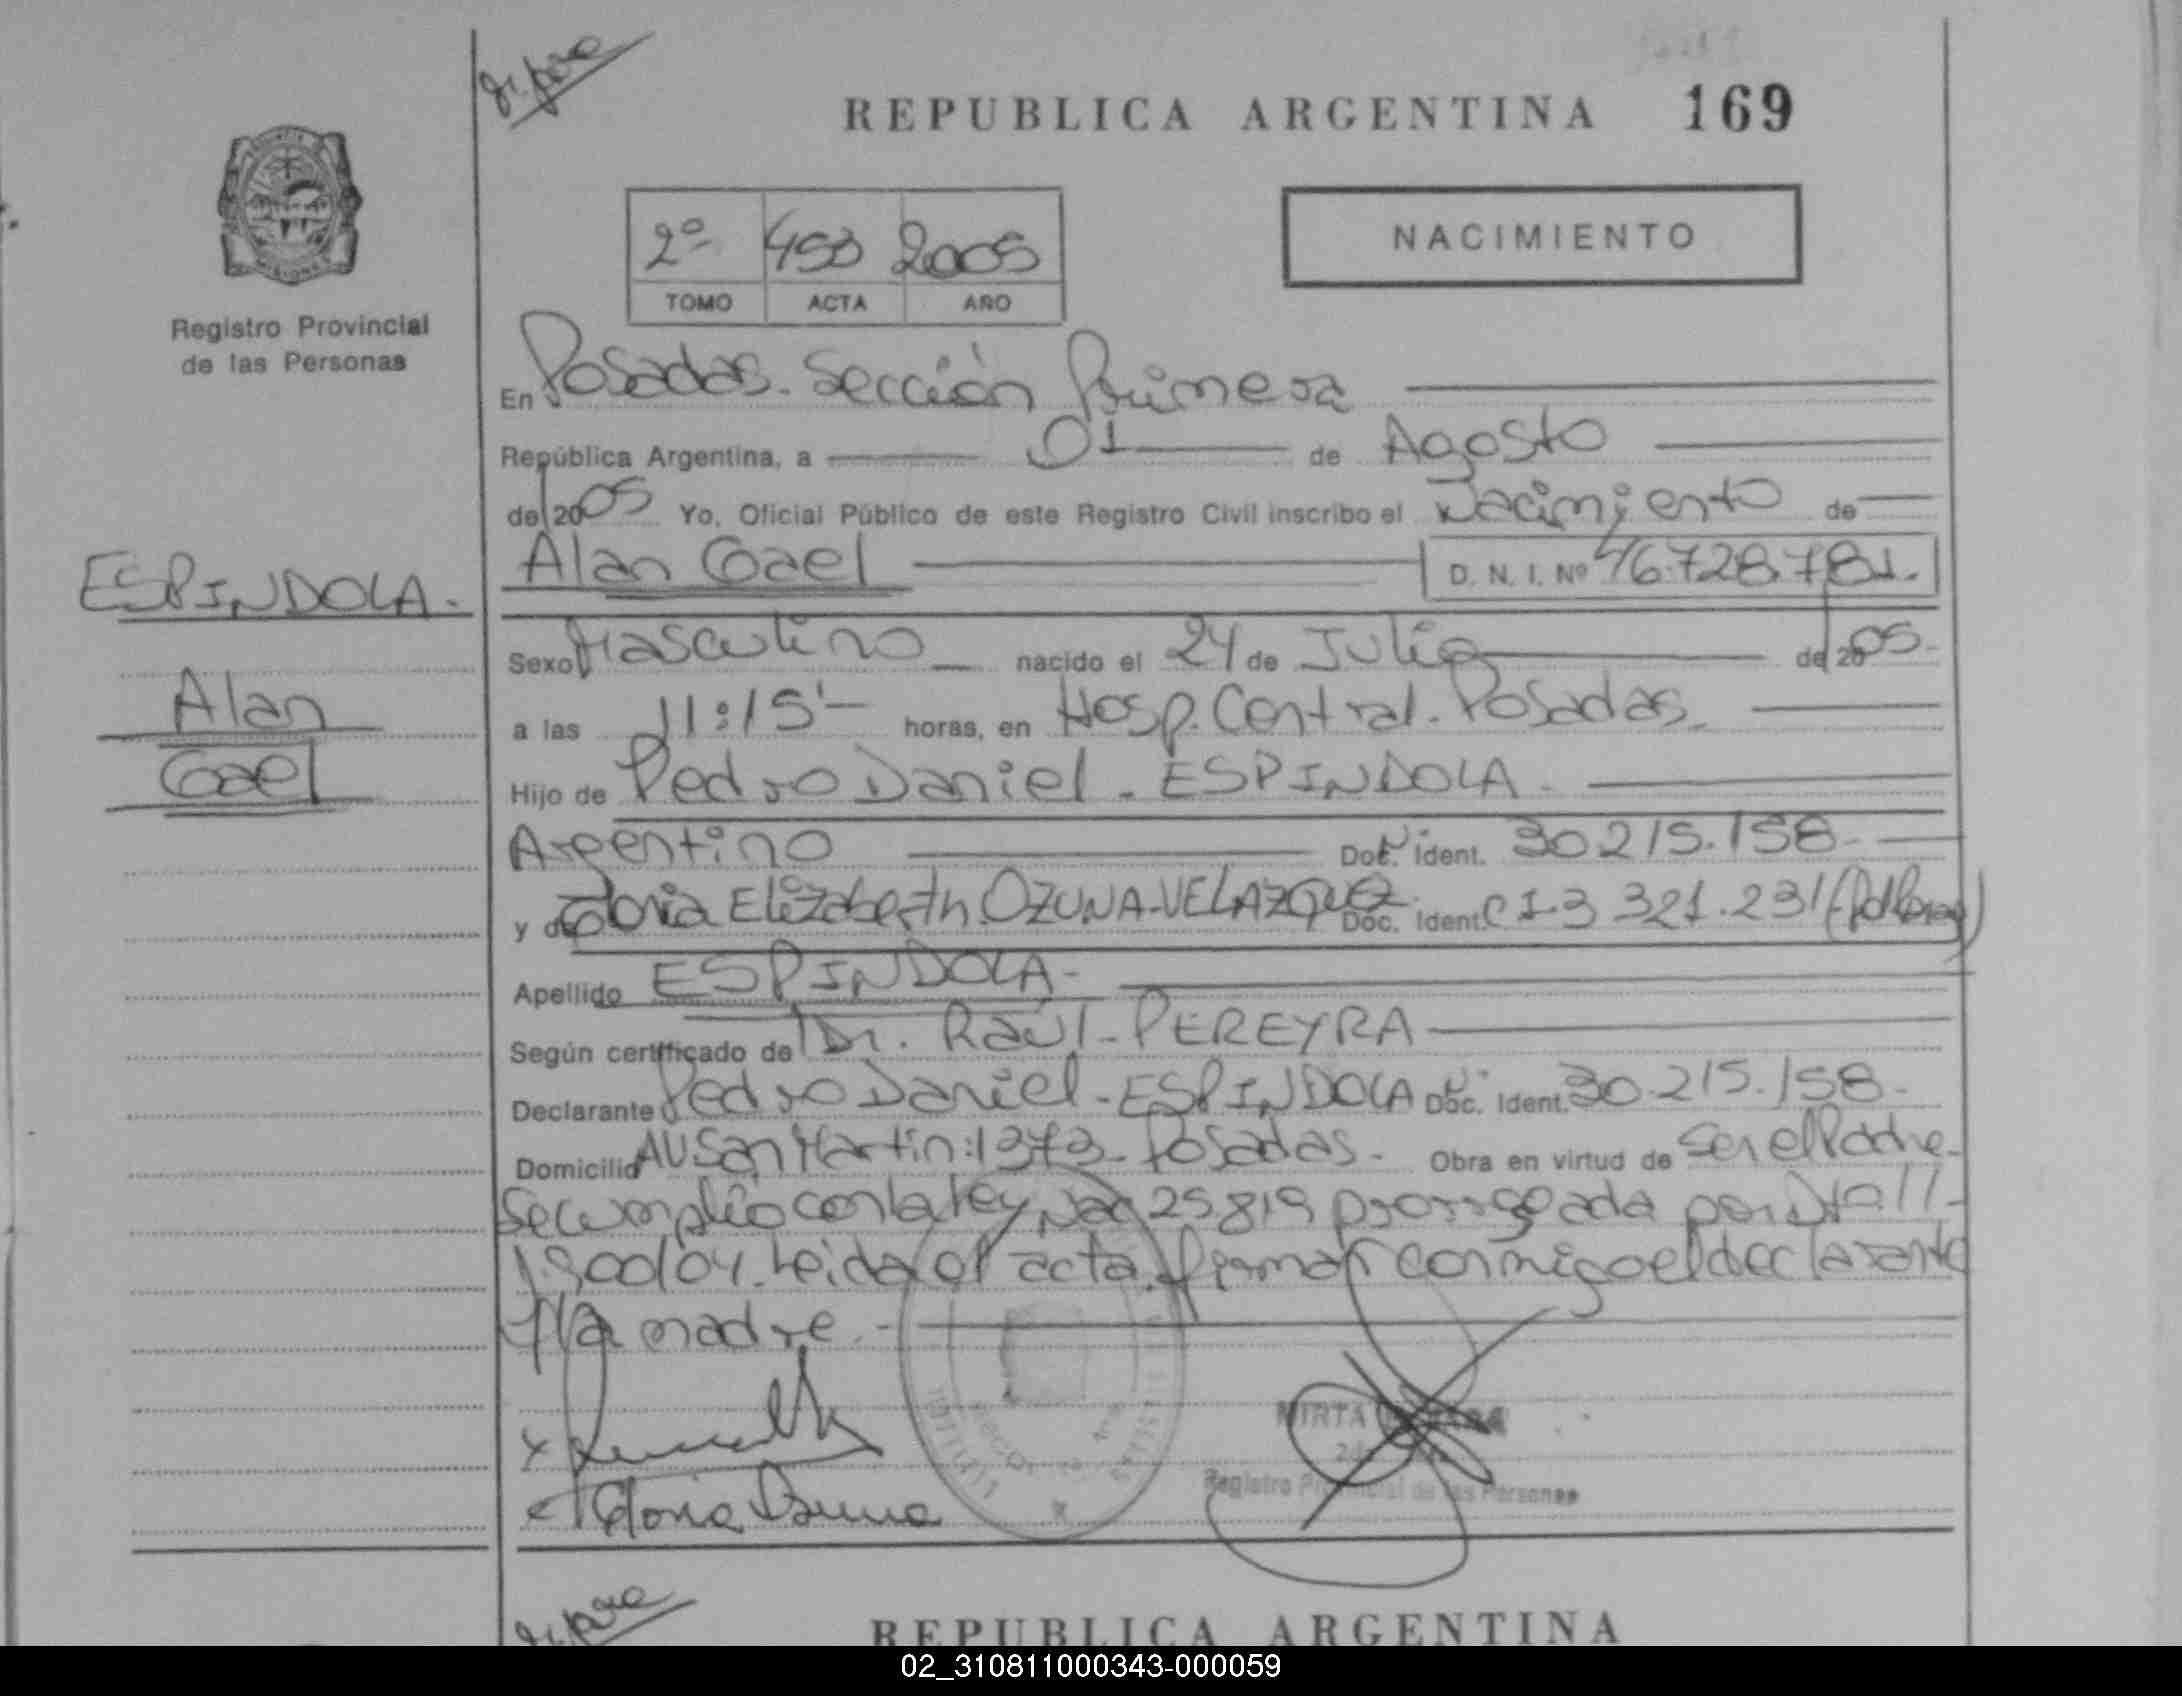 REPUBLICA ARGENTINA 169
PROVINCIA
MISIONES
Registro Provincial
de las Personas
2º 453 2005
TOMO ACTA AÑO
NACIMIENTO
En Posadas. Sección Primera
República Argentina, a 01 de Agosto
de 2005 Yo, Oficial Público de este Registro Civil inscribo el Nacimiento de
Alan Gael D. N. I. Nº 46.728.781.
ESPINDOLA.
Alan
Gael
Sexo Masculino nacido el 24 de Julio de 2005.
a las 11:15' horas, en Hosp. Central. Posadas.
Hijo de Pedro Daniel. ESPINDOLA.
Argentino Doc. Ident. 30.215.158-
y de Gloria Elizabeth OZUNA-VELAZQUEZ Doc. Ident. C I 3 321.231
Apellido ESPINDOLA-
Según certificado de Dr. Raúl-PEREYRA
Declarante Pedro Daniel-ESPINDOLA Doc. Ident. 30.215.158-
Domicilio AV San Martin: 1373- Posadas- Obra en virtud de Ser el Padre-
Se cumplio con la ley Nac 25819 prorrogada por Dto
1.900/04. Leida el acta, firman conmigo el declarante
y la madre.-
Gloria Ozuna
MIRTA
Registro Provincial de las Personas
REPUBLICA ARGENTINA
02_310811000343-000059